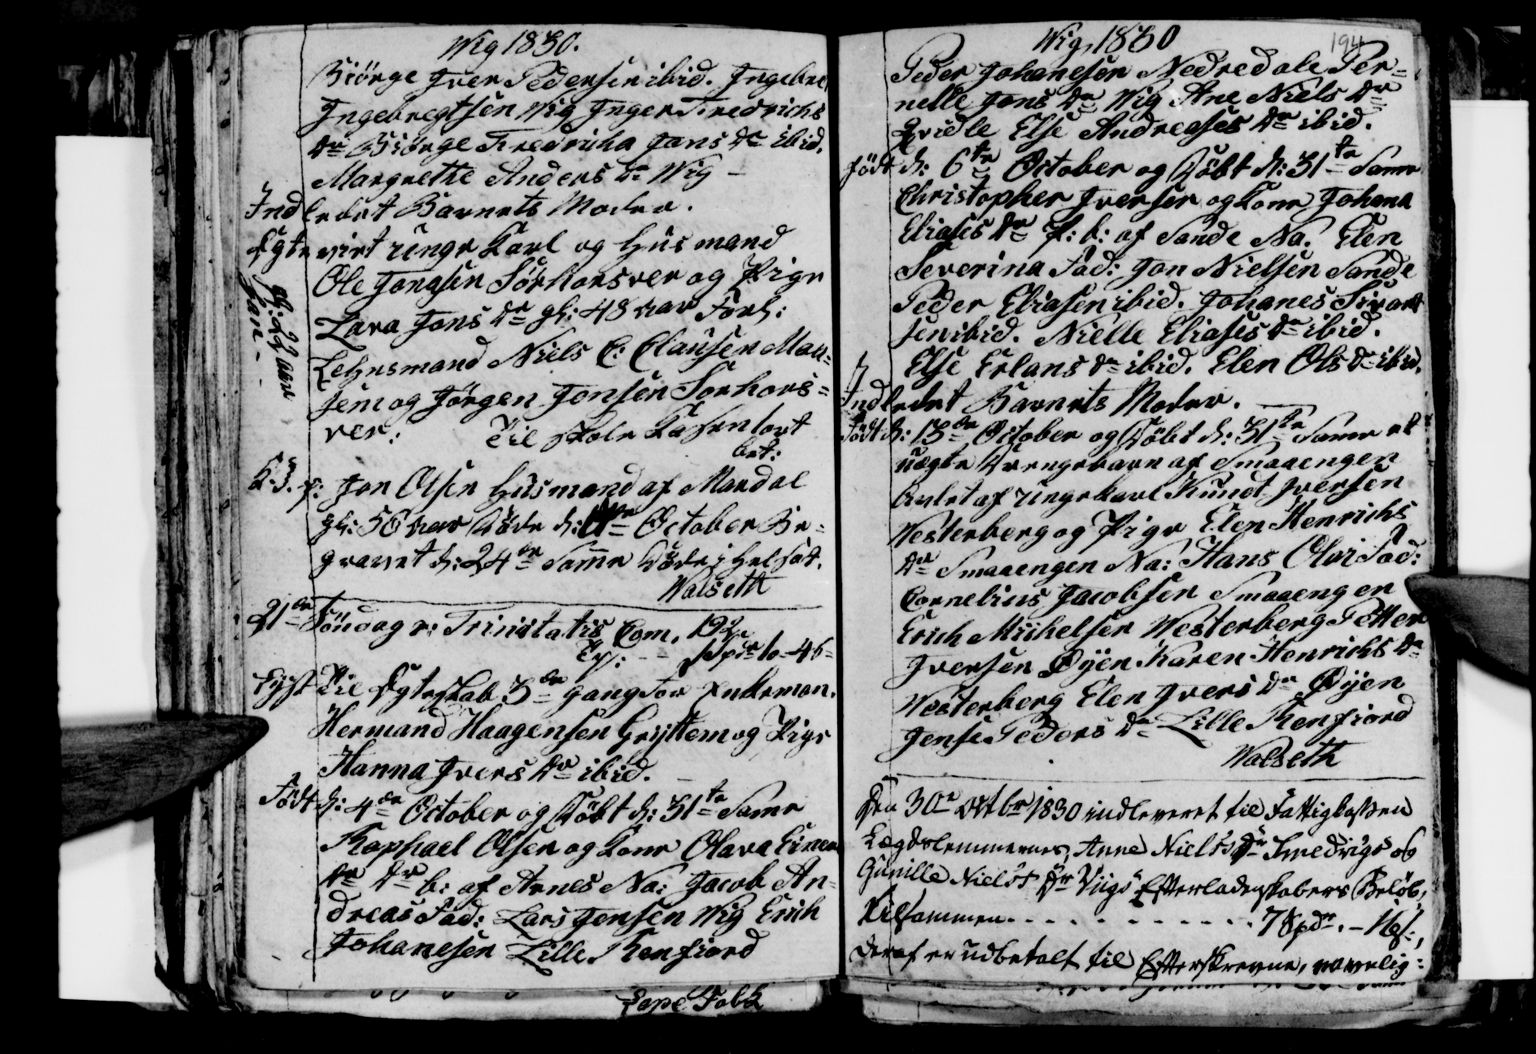 Wig 1830.
Biörge Iver Pedersen ibid. Ingebre
Ingebregtsen Wig Inger Fredrichs
Dr Biörge Fredricha Jons Dr ibid.
Margrethe Anders Dr Wig –
Indledet Barnets Moder.
Egteviet unge Karl og Huusmand
Ole Jonasen Sörhorsver og Pige
Zara Jons Dr gl: 48 aar Forl:
Lehnsmand Niels C: Clausen Man=
og Jörgen Jonsen Sorhors=
ver: Til Skole Kassen
bet:
Jon Olsen Huusmand af Mandal
gl: 56 aar döde d: October Be=
gravet d: 24de Samme döde i
Walseth
21de Söndag e: Trinitatis Com. 192
Lyst Til Egteskab 3die gang for Enkeman.
Hermand Haagensen Gryttem og Pige
Hanna Ivers Dr ibid.
Födt d: 4de October og Döbt d: 31te Samme
Raphael Olsen og Kone Olava
b: af Arnes Na: Jacob An=
dreas Fad: Lars Jensen Wig Erich
Johanesen Lille Renfiord
Wig, 1830
194
Peder Johanesen Nedredale Per=
nelle Jons Dr Wig Ane Niels Dr
Else Andreases Dr ibid.
födt d: 6te October og Döbt d: 31te Samme
Christopher Iversen og Kone Johana
Eliases Dr af Sande Na. Elen
Severina Fad: Jon Nielsen Sande
Peder Eliasen ibid. Johanes Sivart
sen ibid. Nielle Eliases Dr ibid.
Else Erlans Dr ibid. Elen Ols Dr ibid.
Indledet Barnets Moder.
Födt d: 13de October og Döbt d: 31te Samme et
uægte Drengebarn af Smaaengen
Avlet af unge karl Knud Iversen
Westerberg og Pige Elen Henrichs
Dr Smaaengen Na: Hans Olai Fad:
Cornelius Jacobsen Smaaengen
Erich Michelsen Westerberg Petter
Iversen Øyen Karen Henrichs Dr
Westerberg Elen Ivers Dr Øyen
Jense Peders Dr Lille Renfiord
Walseth
Den 30te Octbr 1830 indleveret til Fattigkassen
Lægdslemmernes, Anne Niels Dr Smedrigs og
Gunille Niels Dr Viigs Efterladenskabers Belöb,
tilsammen . . . . . . . . . . 7 Spdr. – 16 s.,
deraf er udbetalt til Efterskrevne, navnlig: